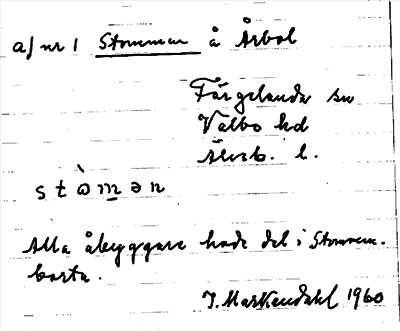 af nr 1 Stommen å Årbol
Färgelanda sn
Valbo hd
Älvsb. l.
s t ò m ə n
Alla åbyggare hade del i Stommen.
borta.
J. Markendahl 1960